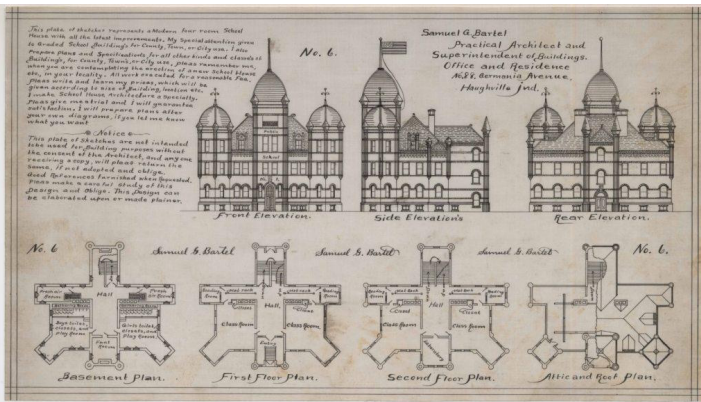 This plate of sketches represents a Modern four room School
House with all the latest improvements. My Special attention given
to Graded School Buildings for County, Town, or City use. I also
prepare plans and Specifications for all other kinds and classes of
Buildings, for County, Town, or City use, pleas remember me,
when you are contemplating the erection of a new School House
etc, in your locality. All work executed for a reasonable Fee,
Pleas write and learn my prices, which will be
given according to size of Building, location etc.
I make School House, Architecture a Specialty.
Pleas give me a trial and I will guarantee
satisfaction. I will prepare plans after
your own diagrams, if you let me know
what you want
Notice
This plate of Sketches are not intended
to be used for Building purposes without
the consent of the Architect, and any one
receiving a copy, will pleas return the
same, if not adopted and oblige.
Good References furnished when Requested.
Pleas make a careful study of this
Design and Oblige. This Design can
be elaborated upon or made plainer.
No. 6.
Samuel G. Bartel
Practical Architect and
Superintendent of Buildings.
Office and Residence
No. 98. Germania Avenue,
Haughville Ind.
Public
School
Front Elevation.
Side Elevation's
Rear Elevation.
No. 6
Samuel G. Bartel
Samuel G. Bartel
Samuel G. Bartel
No. 6.
Hall
Fresh air Room
Fresh air Room
Boys toilet, closets, and Play Room
Girls toilet, closets, and Play Room
Fuel Room
Basement Plan.
Reading Room
Hat Rack
Hat Rack
Reading Room
Closet
Hall,
Closet
Class Room
Class Room
Entry
First Floor Plan.
Reading Room
Hat Rack
Hat Rack
Reading Room
Closet
Hall
Closet
Class Room
Class Room
Second Floor Plan.
Attic and Roof Plan.